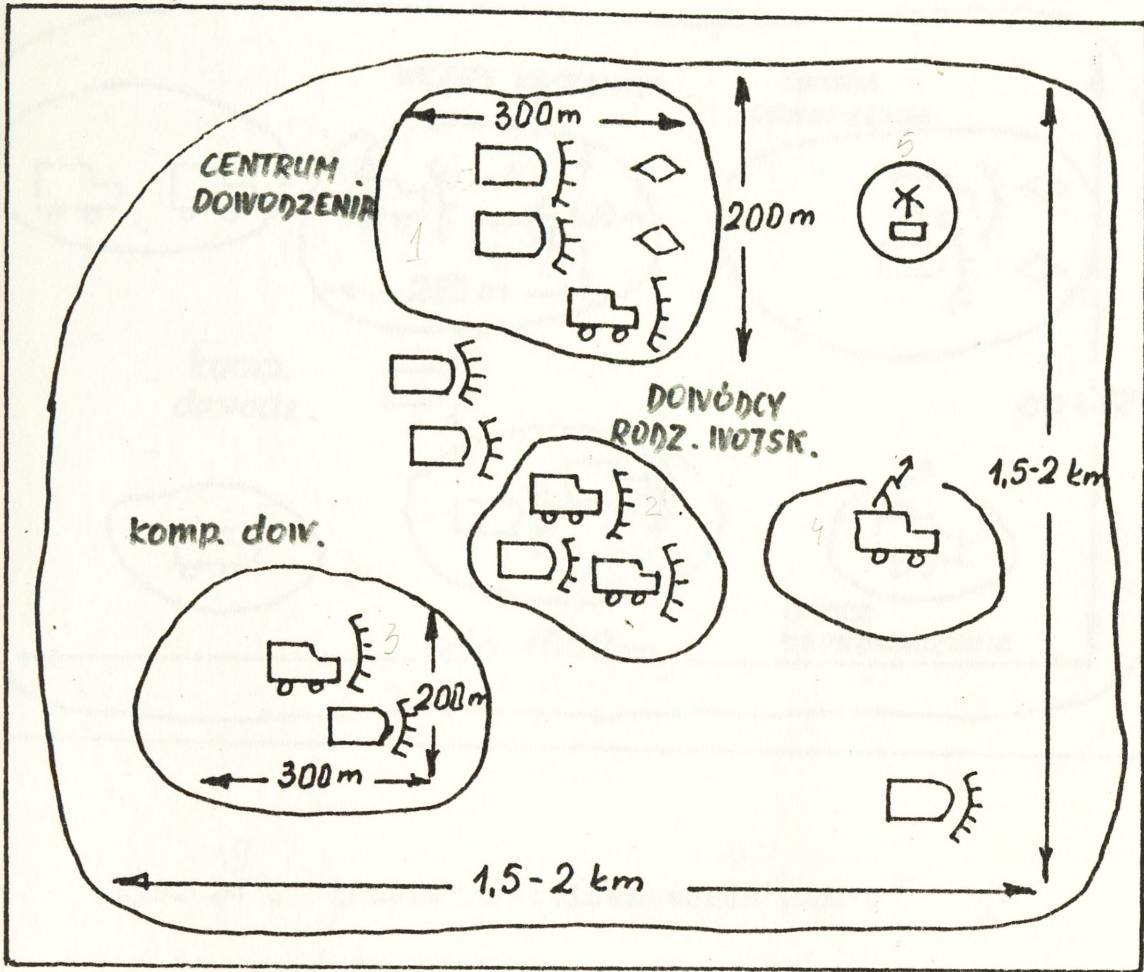 300m
CENTRUM
DOWODZENIA
1
200m
5
DOWÓDCY
RODZ. WOJSK.
1,5-2 km
2
4
komp. dow.
3
200m
300m
1,5-2 km